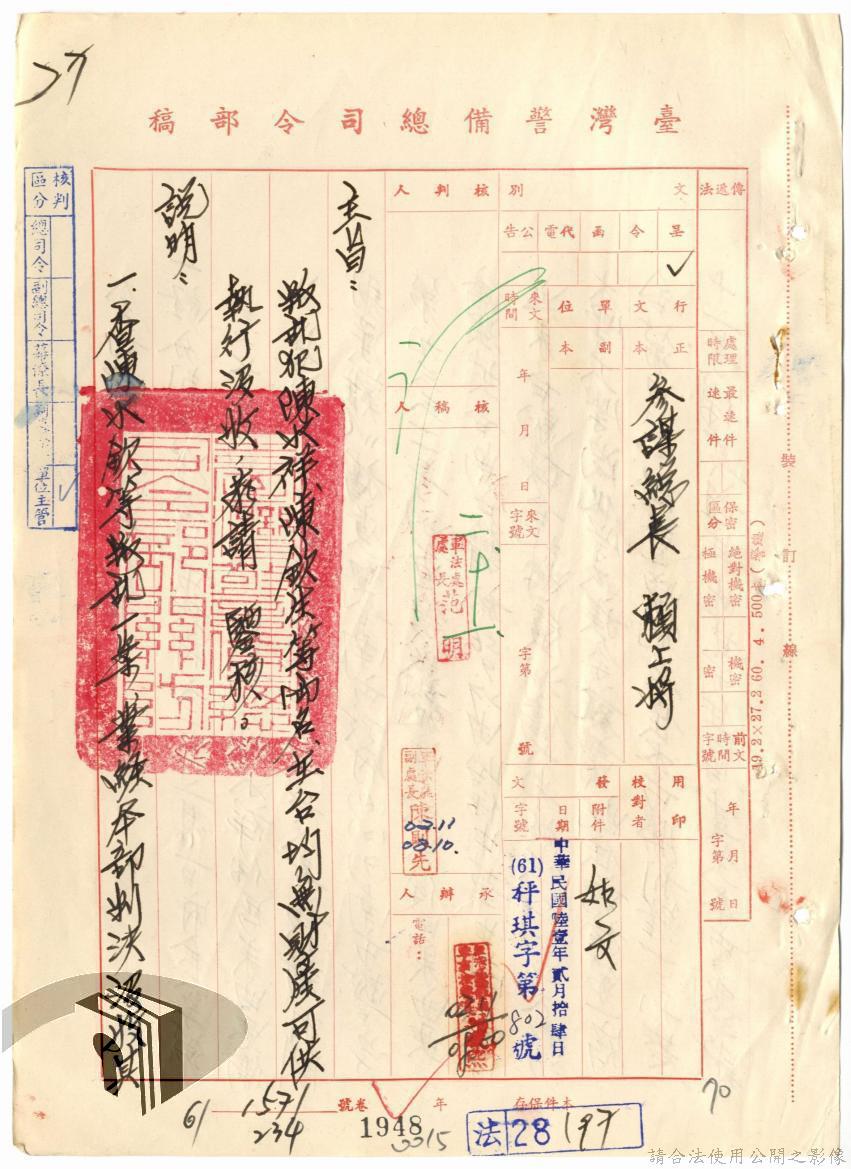 臺灣警備總司令部稿
傳遞法
處理時限
最速件
速件
保密區分
絕對機密
極機密
機密
密
前文時間字號
年月日
字第號
文別
呈
令
函
代電
公告
行文單位
正本
副本
參謀總長 賴上將
來文時間
年月日
來文字號
字第號
用印
校對者
發文
附件
日期
字號
中華民國陸壹年貳月拾肆日
(61)秤琪字第802號
核判人
核稿人
軍法處處長范明
副處長陳
02.11
承辦人
電話:
主旨:
叛亂犯陳水祥、陳欽法等兩名,在台均無財產可供
執行沒收,恭請 鑒核。
說明:
一、查陳水欽等叛亂一案,業經本部判決,沒收其
核判區分
總司令
副總司令
幕僚長
單位主管
裝訂線
19.2×27.2 60.4.500
本件保存 年
卷號
61
1571
234
1948
0015
法28 197
70
請合法使用公開之影像